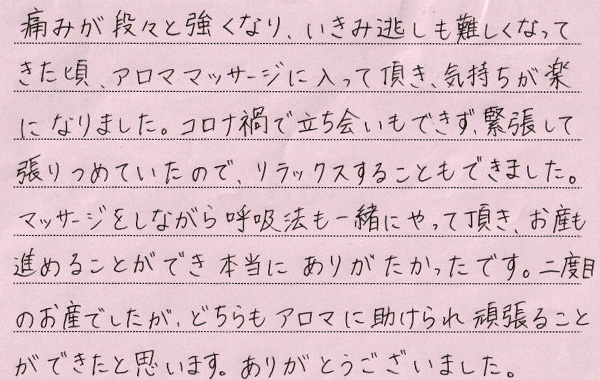 痛みが段々と強くなり、いきみ逃しも難しくなって
きた頃、アロママッサージに入って頂き、気持ちが楽
になりました。コロナ禍で立ち会いもできず、緊張して
張りつめていたので、リラックスすることもできました。
マッサージをしながら呼吸法も一緒にやって頂き、お産も
進めることができ本当にありがたかったです。二度目
のお産でしたが、どちらもアロマに助けられ頑張ること
ができたと思います。ありがとうございました。